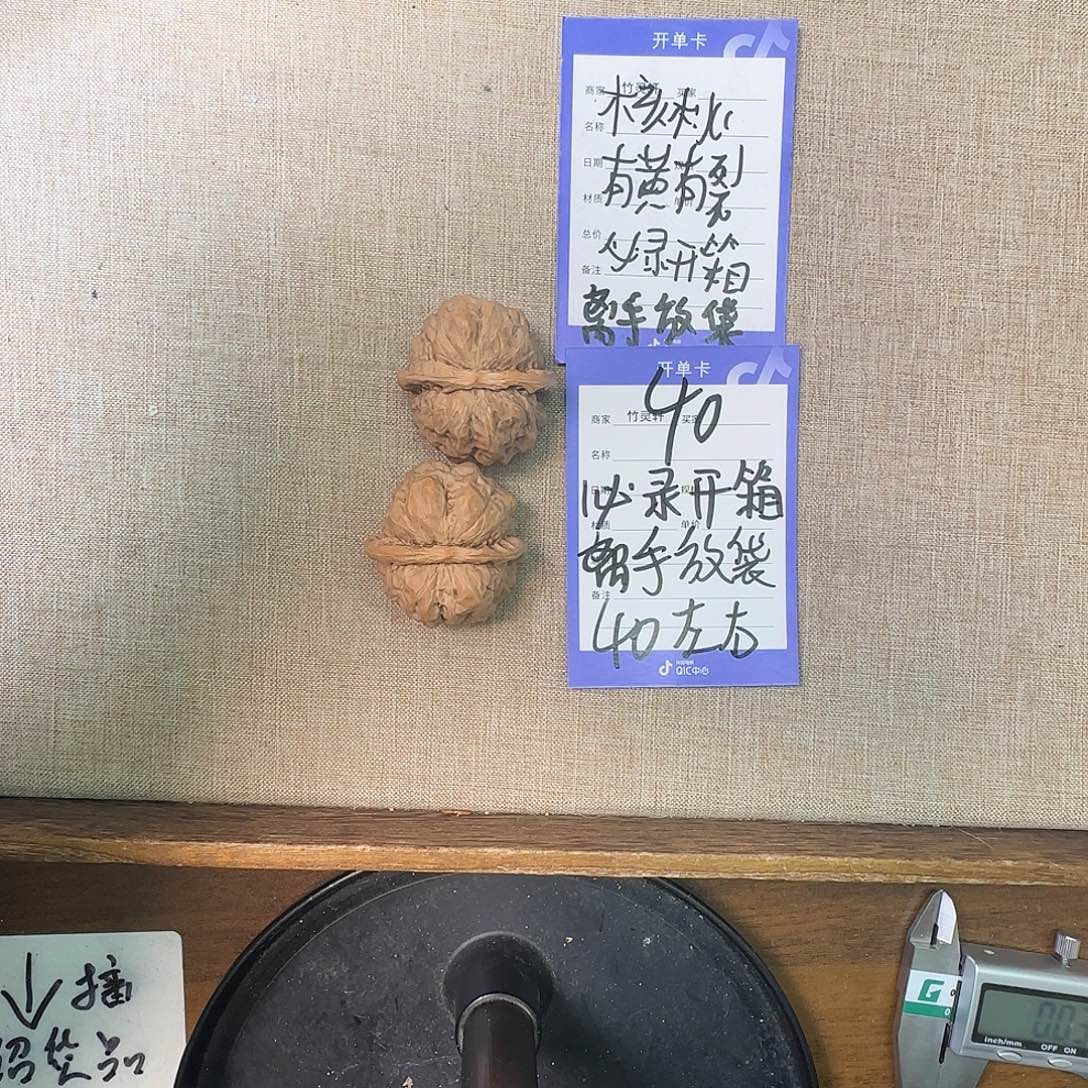 开单卡
商家 竹灵轩 买家
核桃
名称
日期
有黄有裂
材质 单价
总价
必录开箱
备注
离手放袋
开单卡
40
商家 竹灵轩 买家
名称
必录开箱
日期 规格
材质 单价
离手放袋
备注
40左右
抖音电商
QIC中心
↓ 描
绍 货品
G
0.0
inch/mm OFF ON